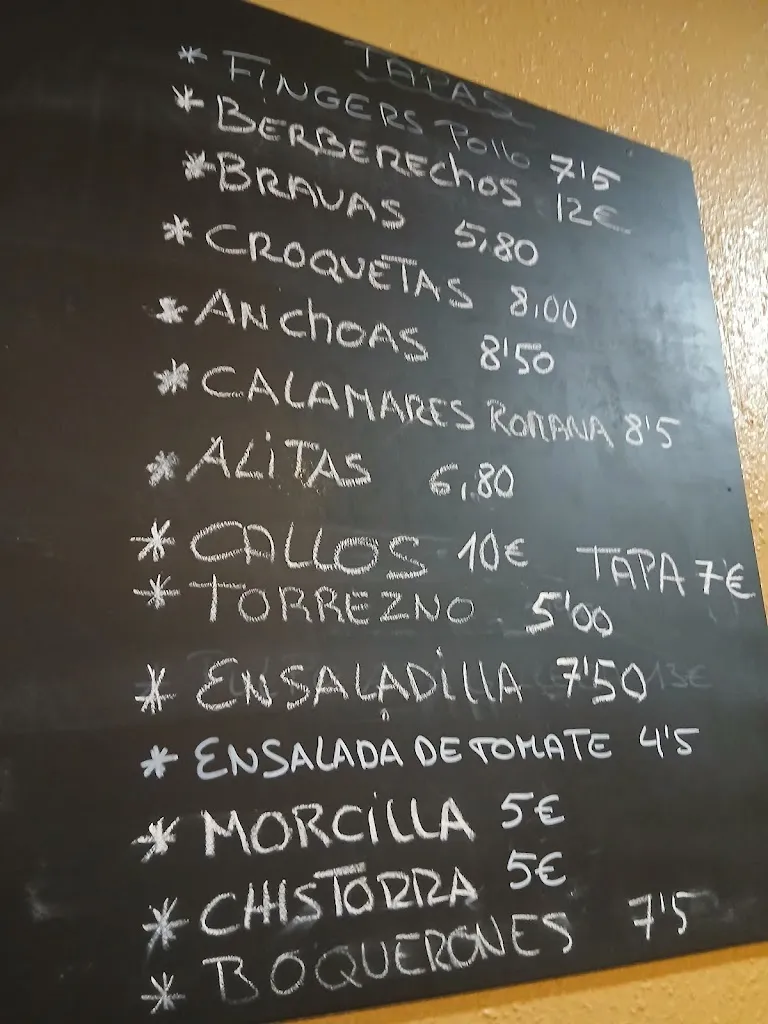 TAPAS
* FINGERS POLLO 7'5
* BERBERECHOS 12€
* BRAVAS 5,80
* CROQUETAS 8,00
* ANCHOAS 8'50
* CALAMARES ROMANA 8'5
* ALITAS 6,80
* CALLOS 10€ TAPA 7€
* TORREZNO 5'00
* ENSALADILLA 7'50
* ENSALADA DE TOMATE 4'5
* MORCILLA 5€
* CHISTORRA 5€
* BOQUERONES 7'5